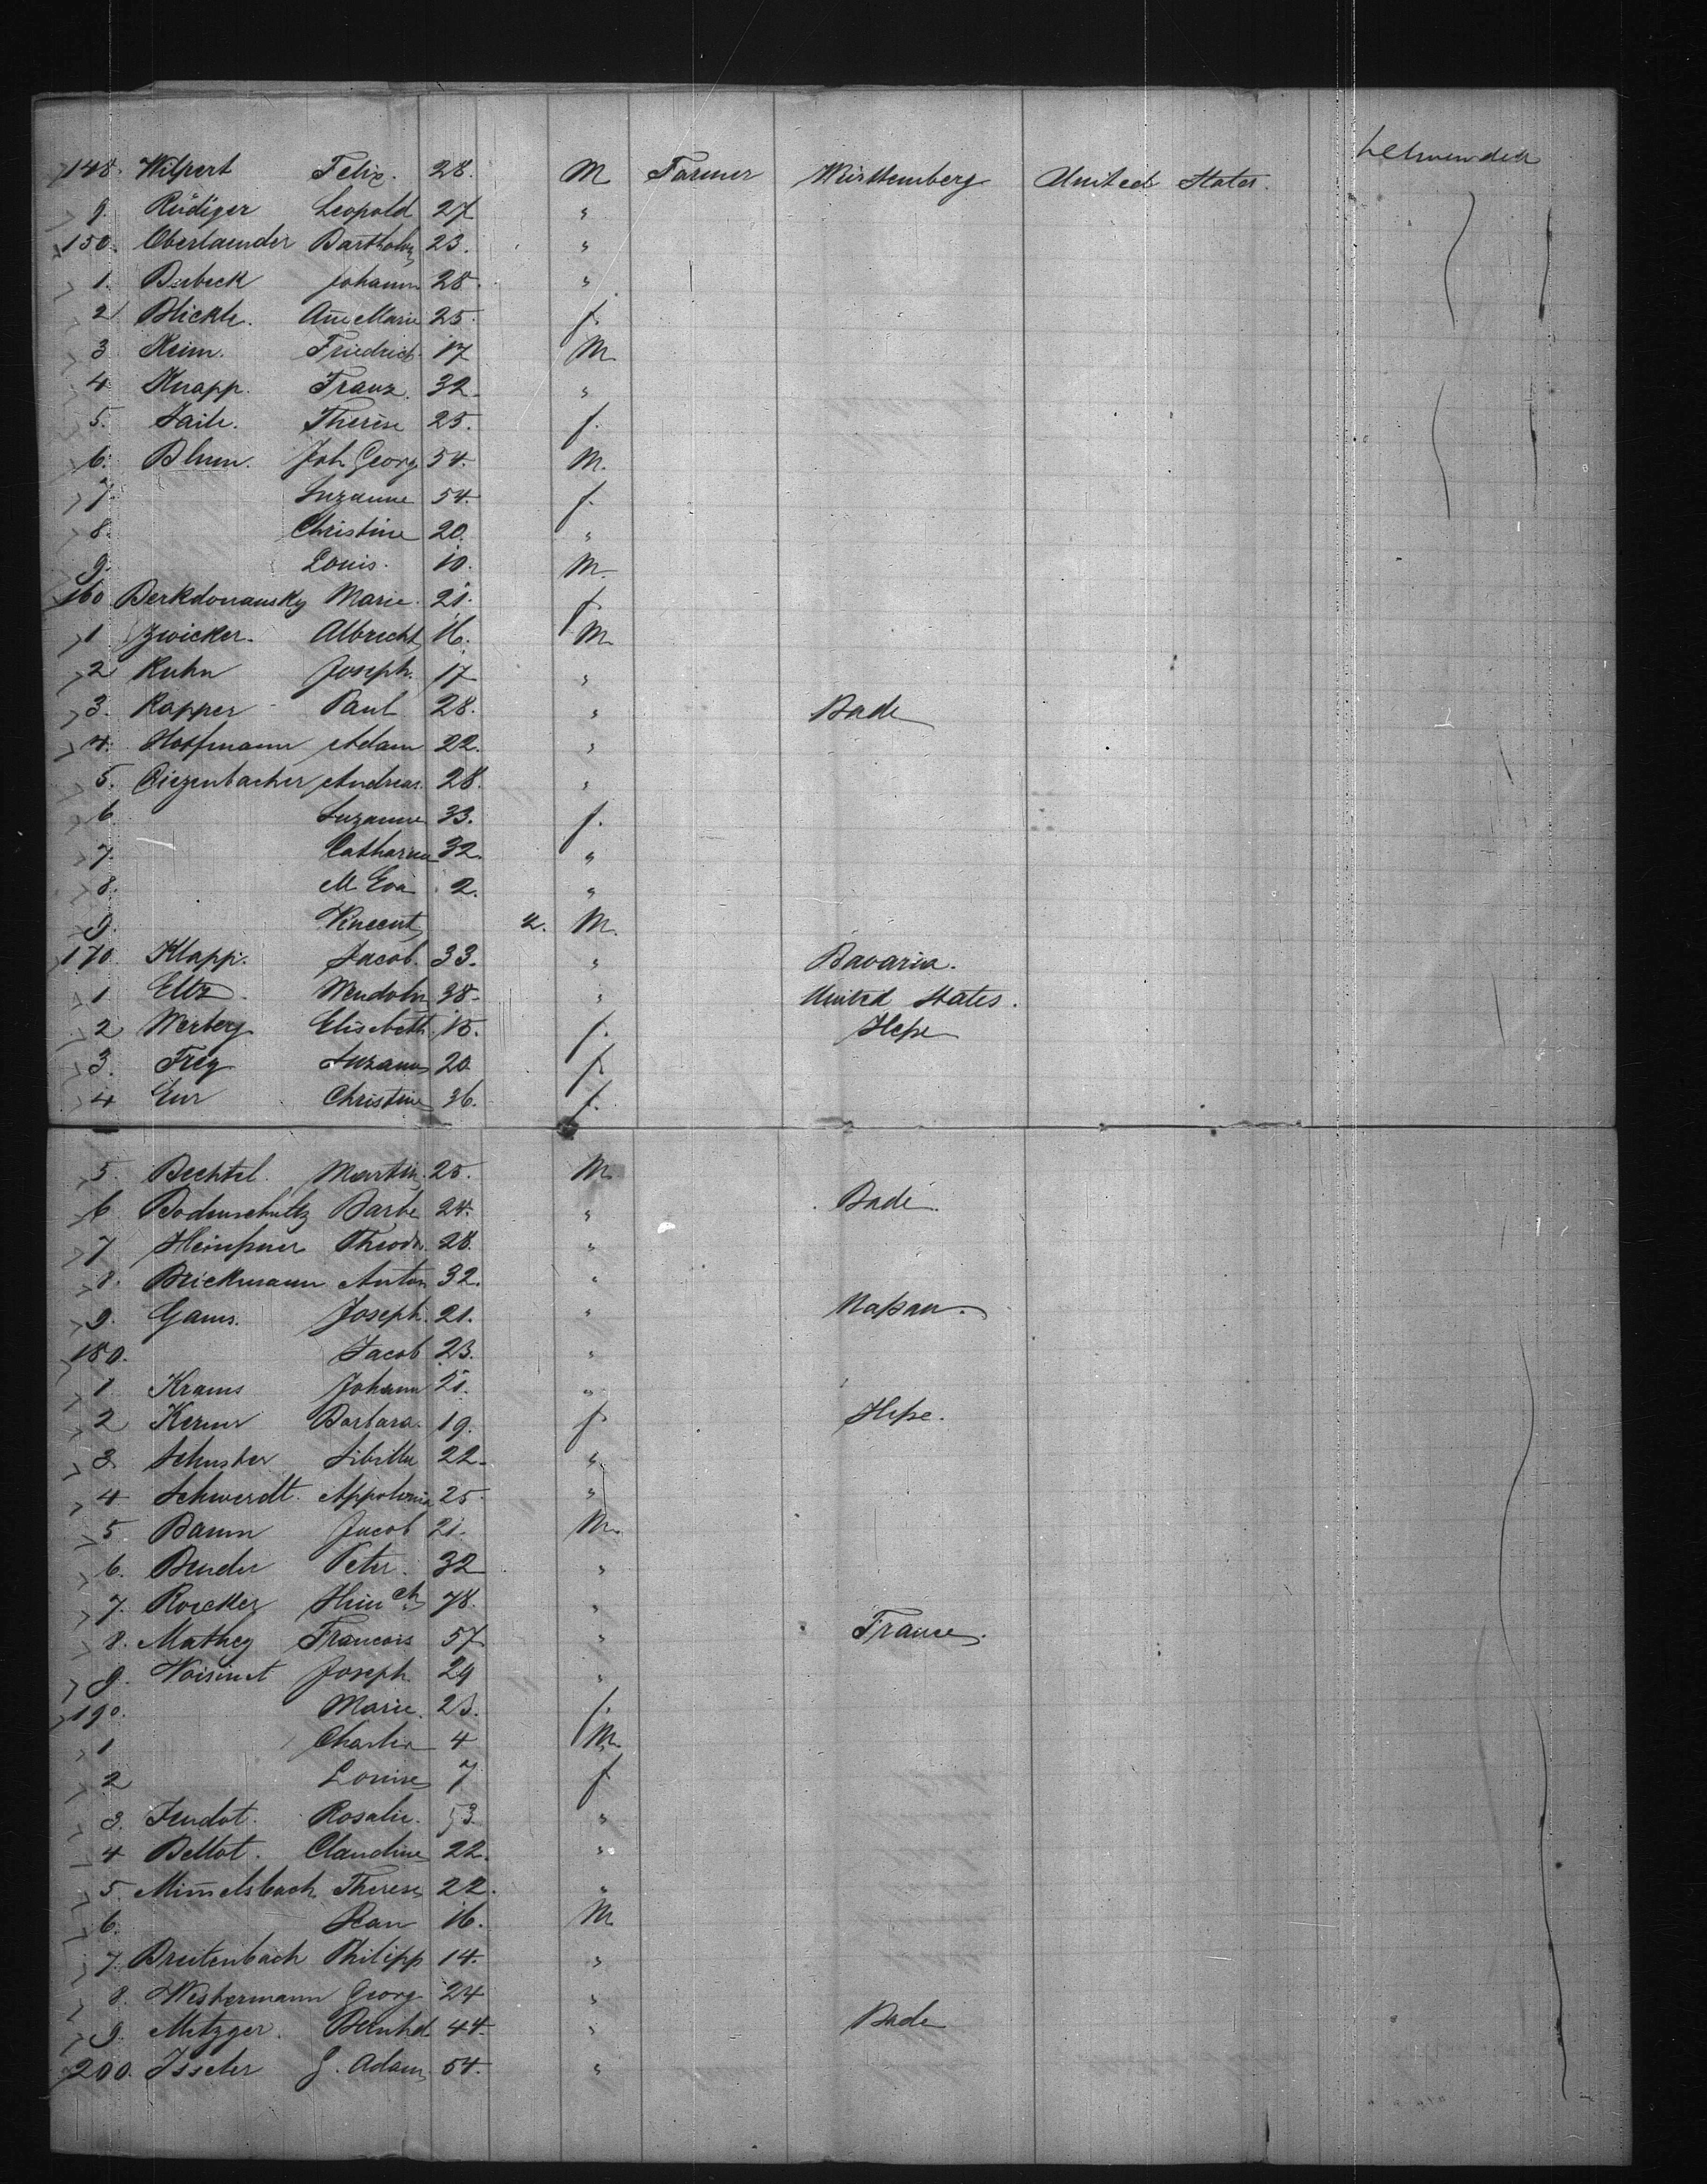 148. Wilpert Felix. 28. M Farmer Württemberg United States.
9. Rüdiger Leopold 27 "
150. Oberlaender Bartholm 23. "
1. Berbeck Johann 28. "
2 Blickle. An̄e Marie 25. f.
3 Keim. Friedrich. 17 M
4 Knapp. Franz. 32. "
5. Saile. Therese 25. f.
6. Blum. Joh Georg 54. M.
7. Suzanne 54. f.
8. Christine 20. "
9. Louis. 10. M.
160 Berkdouansky Marie. 21. f
1 Zwicker. Albrecht 16. M.
2 Kuhn Joseph. 17 "
3. Rapper Paul 28. " Bade
4. Hoffmann Adam 22. "
5. Andreas. 28. "
6. Suzanne 33. f.
7. Catharina 32. "
8. M Eva 2. "
9. Vincent 2. M.
170. Klapp. Jacob. 33. " Bavaria.
1 Eltz. Wendolin 38. " United States.
2 Werberg Elisabeth. 15. f. Heſse
3. Frey Suzanne 20 f.
4 Christine 36. f.
5. Bechtel. Martin. 25. M.
6 Bodenschultz Barbe 24. " Bade.
7 Theodor. 28. "
8. Brickmann Anton 32. "
9. Gams. Joseph. 21. " Naſsau.
180. Jacob 23. "
1 Krams Johann 21. "
2 Barbara. 19. f. Heſse.
3 Schuster Sibilla 22. "
4 Schwerdt. Appolonia 25. "
5. Baum Jacob 21. M.
6. Bender Peter. 32 "
7. Roecker Heinch 78. "
8. Mathey Francois 57 " France.
9. Voisinet Joseph. 29 "
190. Marie. 23. f.
1 Charles 4 M.
2 Louise 7 f
3. Feudot. Rosalie. 53. "
4 Bellot. Claudine 22. "
5. Mim̄elsbach. Therese 22. "
6. Jean 16. M
7. Breitenbach Philipp 14. "
8. Westermann Georg 24 "
9. Metzger. Bernhd 44. " Bade
200. Isseler G. Adam 54. "